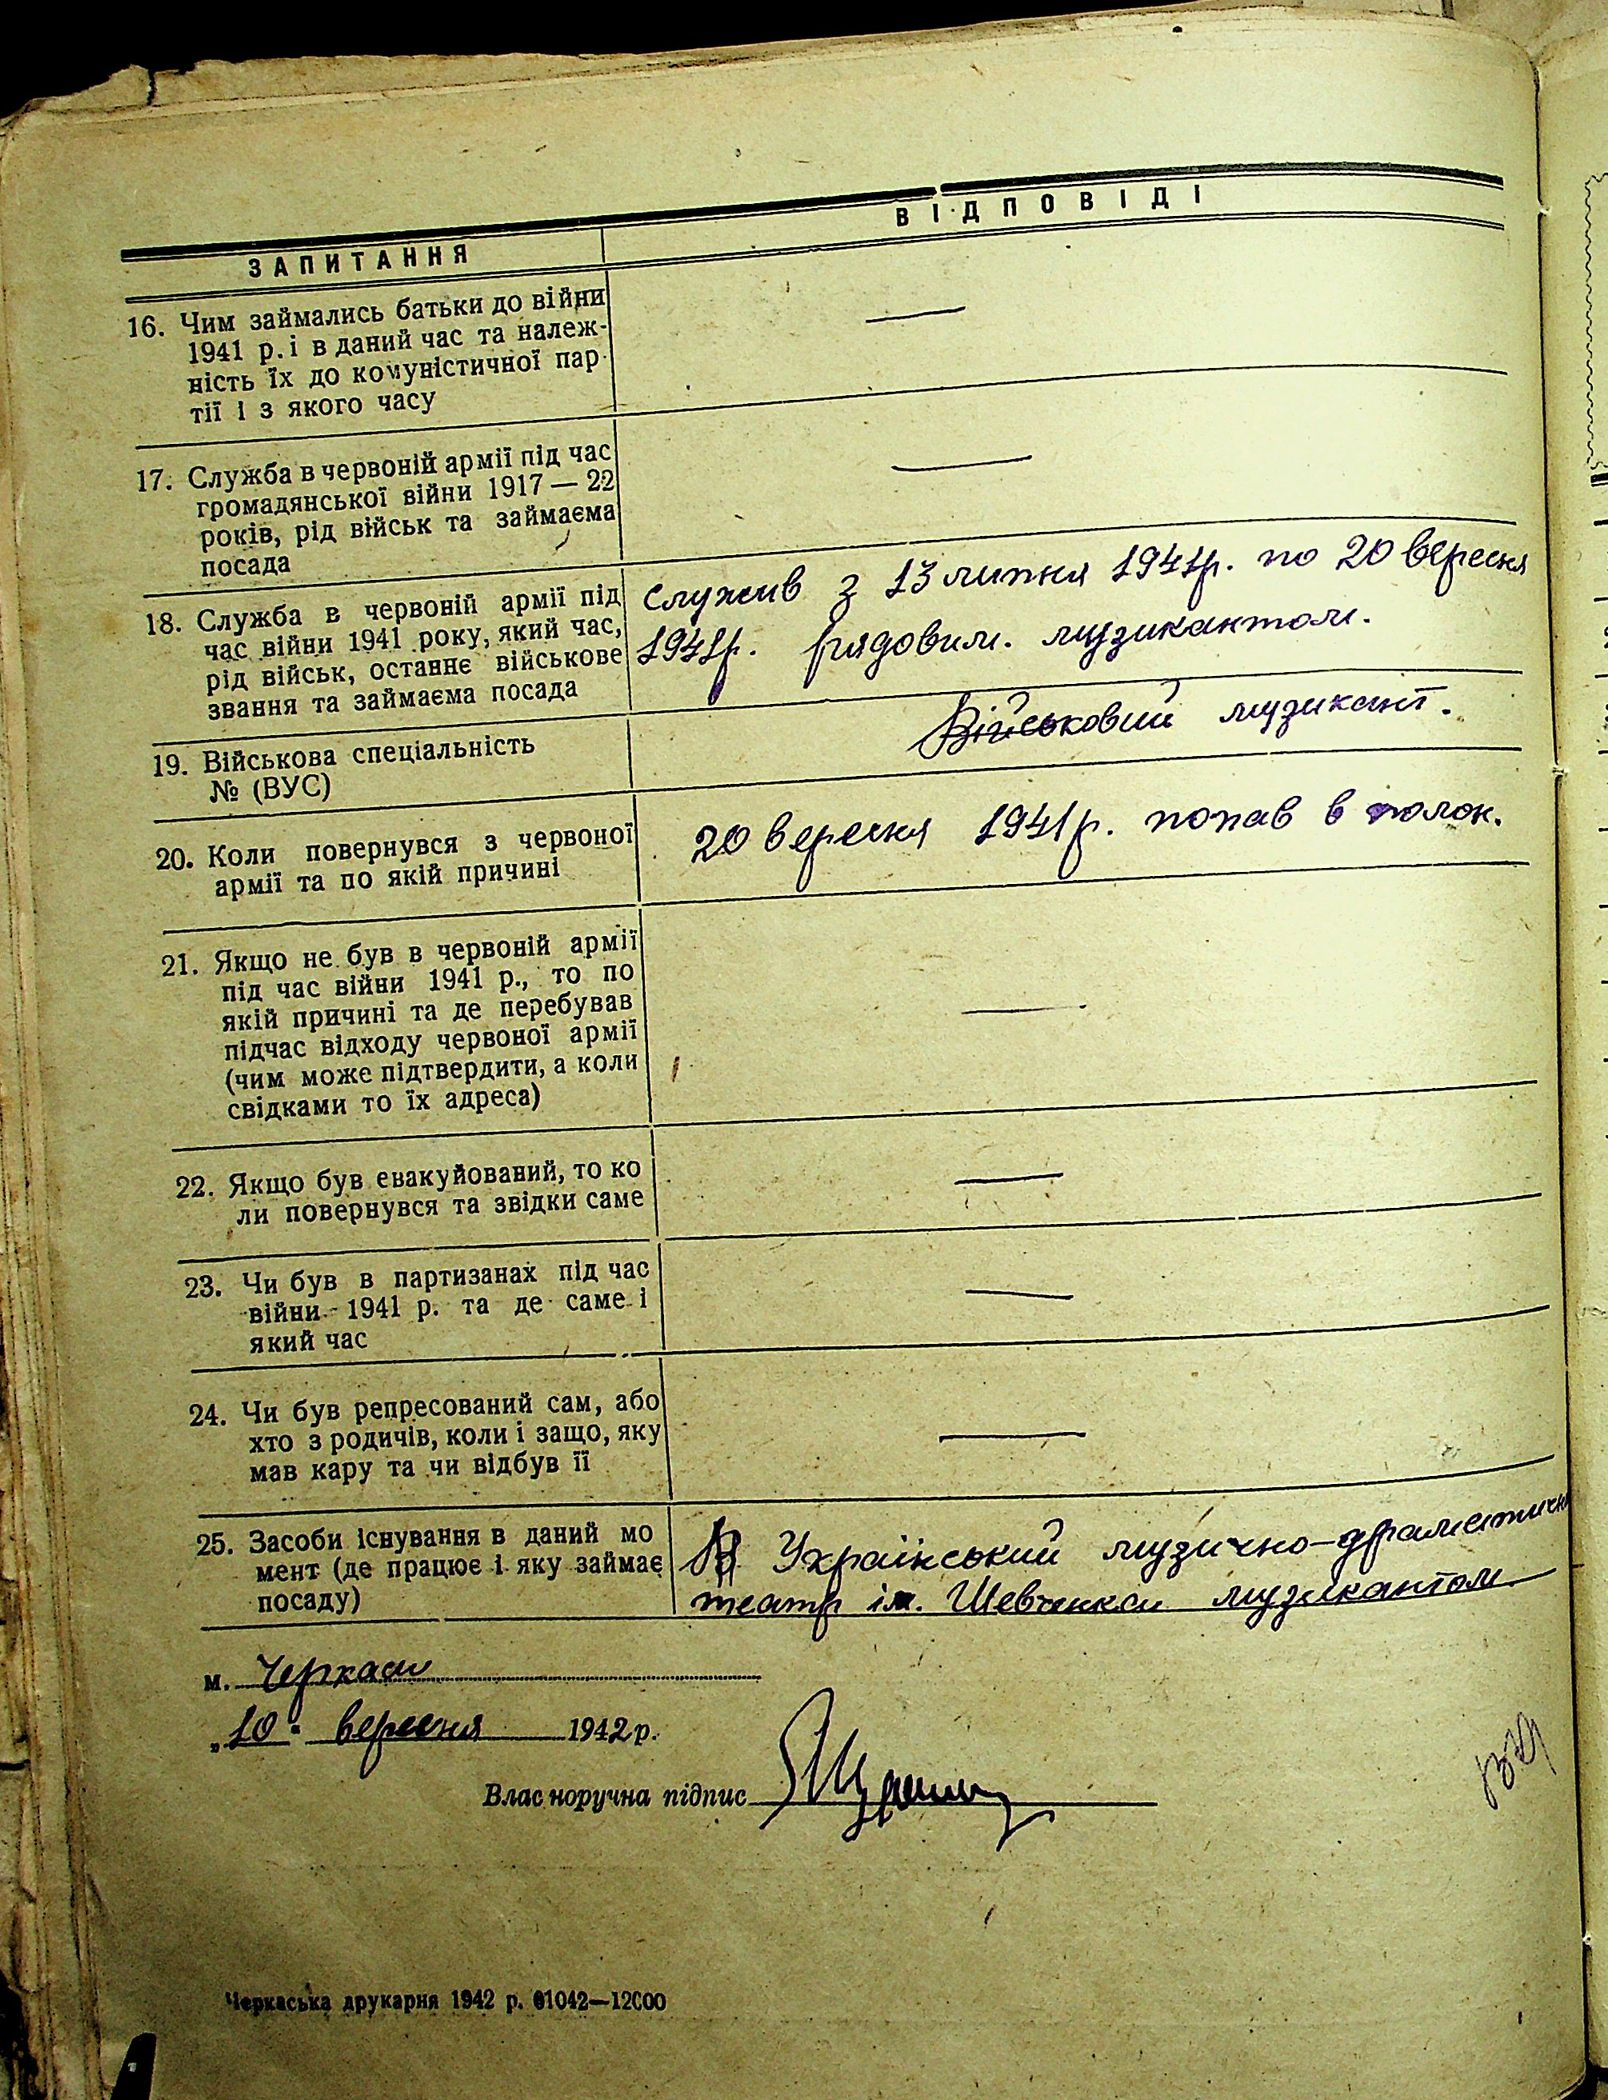 ЗАПИТАННЯ
ВІДПОВІДІ
16. Чим займались батьки до війни
1941 р. і в даний час та належ-
ність їх до комуністичної пар
тії і з якого часу
—
17. Служба в червоній армії під час
громадянської війни 1917 — 22
років, рід військ та займаєма
посада
—
18. Служба в червоній армії під
час війни 1941 року, який час,
рід військ, останнє військове
звання та займаєма посада
Служив з 13 липня 1941р. по 20 вересня
1941р. рядовим. музикантом.
19. Військова спеціальність
№ (ВУС)
Військовий музикант.
20. Коли повернувся з червоної
армії та по якій причині
20 вересня 1941р. попав в полон.
21. Якщо не був в червоній армії
під час війни 1941 р., то по
якій причині та де перебував
підчас відходу червоної армії
(чим може підтвердити, а коли
свідками то їх адреса)
—
22. Якщо був евакуйований, то ко
ли повернувся та звідки саме
—
23. Чи був в партизанах під час
війни 1941 р. та де саме і
який час
—
24. Чи був репресований сам, або
хто з родичів, коли і защо, яку
мав кару та чи відбув її
—
25. Засоби існування в даний мо
мент (де працює і яку займає
посаду)
В Український музично-драматичн
театр ім. Шевченка музикантом
м. Черкаси
„10" вересня 1942 р.
Власноручна підпис
Черкаська друкарня 1942 р. 01042—12000